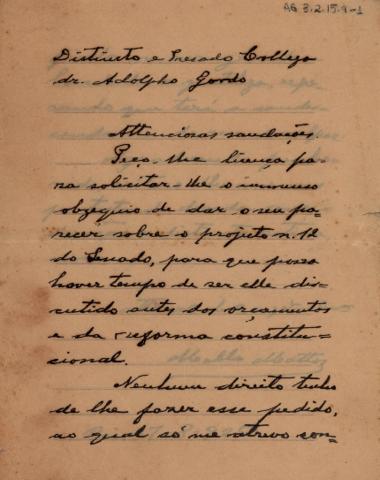 AG 3.2.15.9-1
Distincto e Presado Collega
dr. Adolpho Gordo
Attenciosas saudações.
Peço-lhe licença pa-
ra solicitar-lhe o immenso
obzequio de dar o seu pa-
recer sobre o projeto n. 12
do Senado, para que possa
haver tempo de ser elle dis-
cutido antes dos orçamentos
e da reforma constitu-
cional.
Nenhum direito tenho
de lhe fazer esse pedido,
ao qual só me atrevo con-